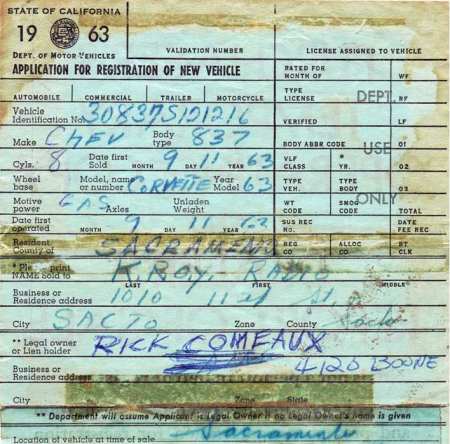 STATE OF CALIFORNIA
19 63
DEPT. OF MOTOR VEHICLES
VALIDATION NUMBER
LICENSE ASSIGNED TO VEHICLE
APPLICATION FOR REGISTRATION OF NEW VEHICLE
RATED FOR MONTH OF WF
AUTOMOBILE COMMERCIAL TRAILER MOTORCYCLE
TYPE LICENSE DEPT. RF
Vehicle Identification No. 30837S121216
VERIFIED LF
Make CHEV Body type 837
BODY ABBR CODE USE
Cyls. 8 Date first Sold MONTH 9 DAY 11 YEAR 63
VLF CLASS * YR. 02
Wheel base Model, name or number CORVETTE Year Model 63
TYPE VEH. TYPE BODY ONLY 03
Motive power GAS Axles Unladen Weight
WT CODE SMOG CODE TOTAL
Date first operated 9 11 63
MONTH DAY YEAR
SUS REC NO. DATE FEE REC
Resident County of SACRAMENTO
REG CO ALLOC CO RT CLK
* Please print NAME Sold to KROY RADIO
LAST FIRST MIDDLE
Business or Residence address 1010 11th St.
City SACTO Zone County Sacto
** Legal owner or Lien holder RICK COMEAUX
Business or Residence address 4120 BOONE
City Zone State
** Department will assume Applicant is Legal Owner if no Legal Owner's name is given
Location of vehicle at time of sale Sacramento